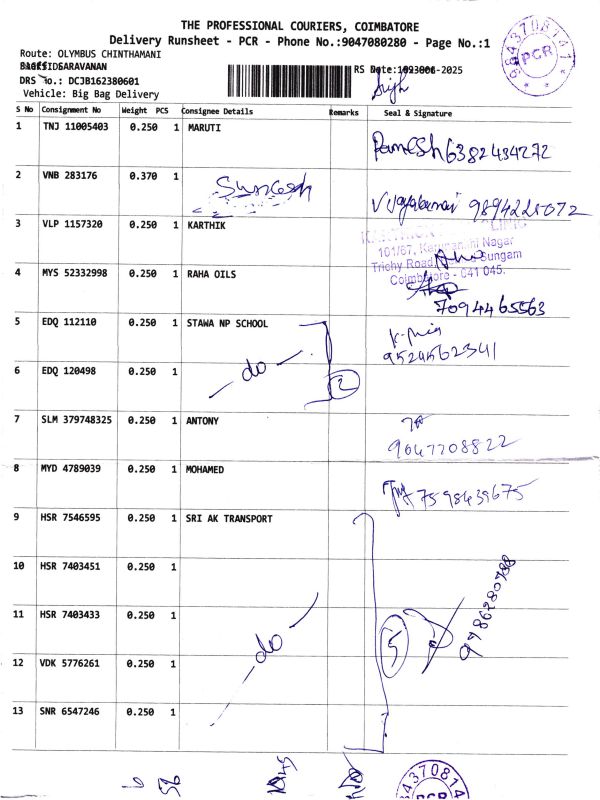 THE PROFESSIONAL COURIERS, COIMBATORE
Delivery Runsheet - PCR - Phone No.:9047080280 - Page No.:1
Route: OLYMBUS CHINTHAMANI
SARAVANAN
DRS No.: DCJB162380601
Vehicle: Big Bag Delivery
RS Date: -2025
9843708141
PCR
S No Consignment No Weight PCS Consignee Details Remarks Seal & Signature
1 TNJ 11005403 0.250 1 MARUTI Ramesh 6382434272
2 VNB 283176 0.370 1 Suncesh 9894228072
3 VLP 1157320 0.250 1 KARTHIK
101/67, Karunanidhi Nagar
Trichy Road, Sungam
Coimbatore - 641 045.
4 MYS 52332998 0.250 1 RAHA OILS 7094465563
5 EDQ 112110 0.250 1 STAWA NP SCHOOL 9524562341
6 EDQ 120498 0.250 1 - do - 2
7 SLM 379748325 0.250 1 ANTONY 9047708822
8 MYD 4789039 0.250 1 MOHAMED 7598439675
9 HSR 7546595 0.250 1 SRI AK TRANSPORT
10 HSR 7403451 0.250 1
11 HSR 7403433 0.250 1 - do - 5 9786280788
12 VDK 5776261 0.250 1
13 SNR 6547246 0.250 1
PCR